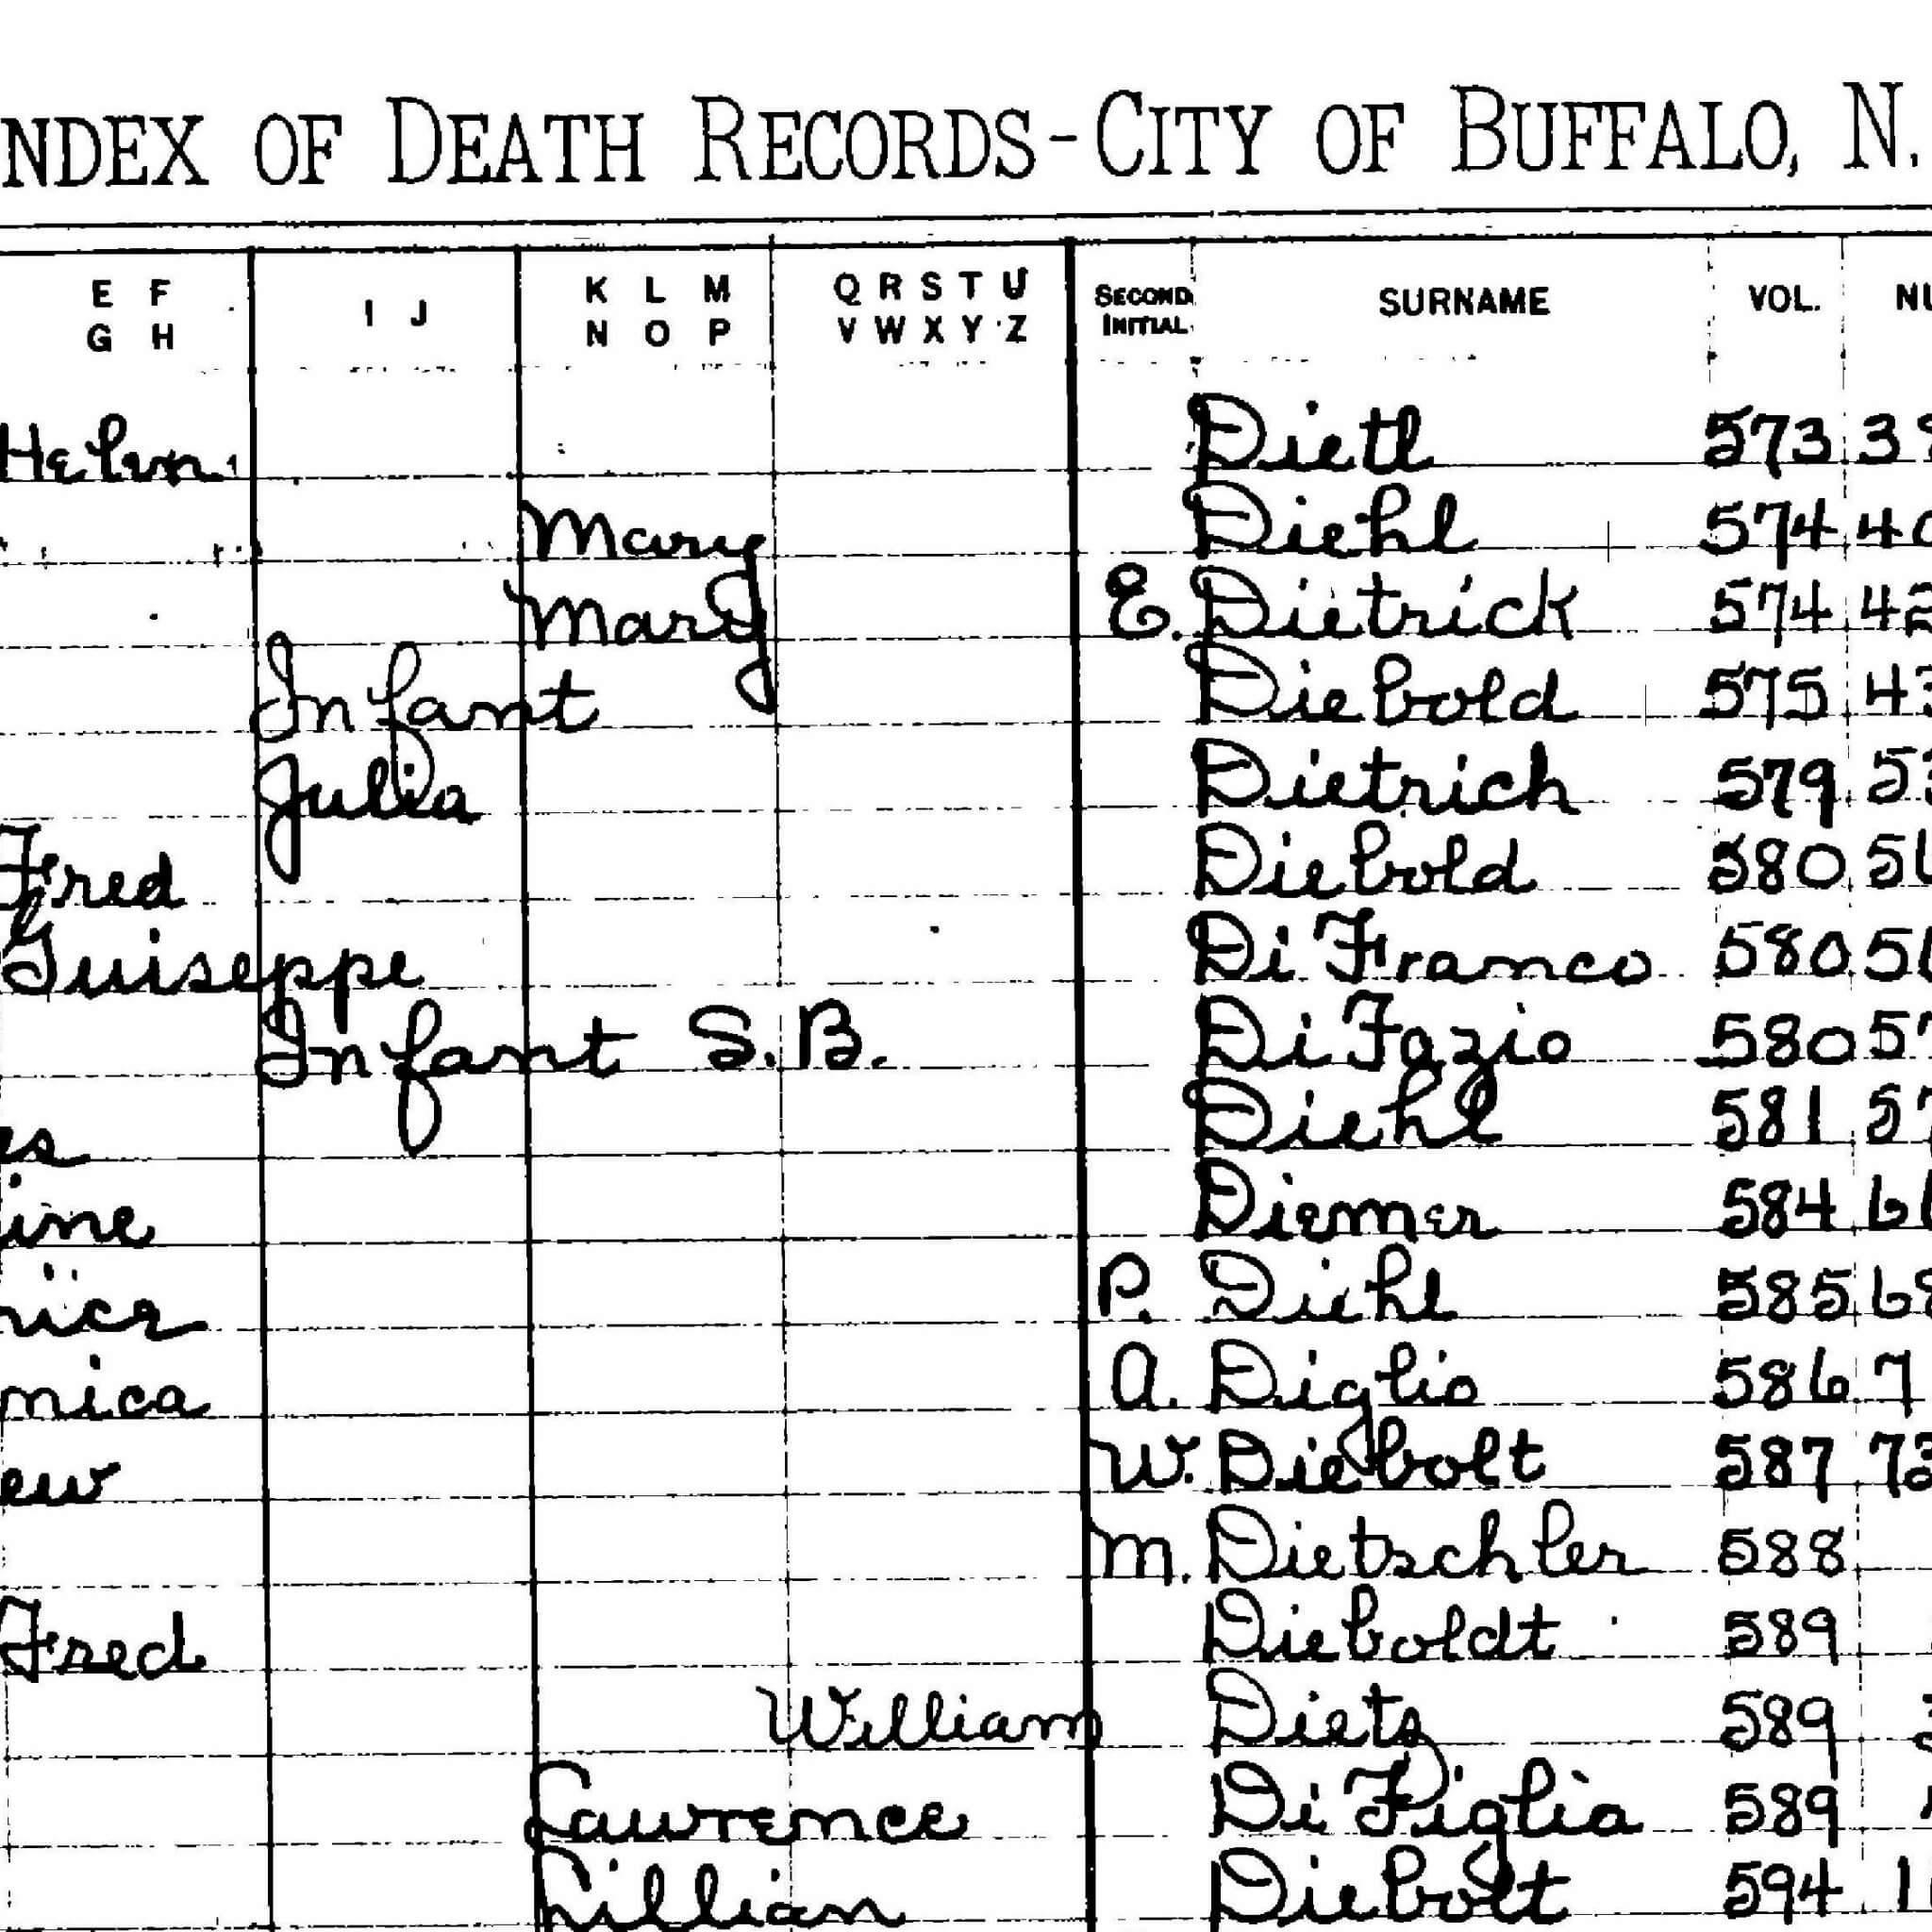 NDEX OF DEATH RECORDS-CITY OF BUFFALO, N.
E F G H I J K L M N O P Q R S T U V W X Y Z SECOND INITIAL SURNAME VOL. NU
Helen Dietl 573 38
Mary Diehl 574 40
Mary E. Dietrick 574 42
Infant Diebold 575 43
Julia Dietrich 579 53
Fred Diebold 580
Guiseppe Di Franco 580
Infant S.B. Di Fazio 580 57
es Diehl 581 57
ine Diemer 584
nice P. Diehl 585 68
mica A. Diglio 586 7
ew W. Diebolt 587 73
M. Dietschler 588
Fred Dieboldt 589
William Dietz 589
Lawrence Di Figlia 589
Lillian Diebolt 594